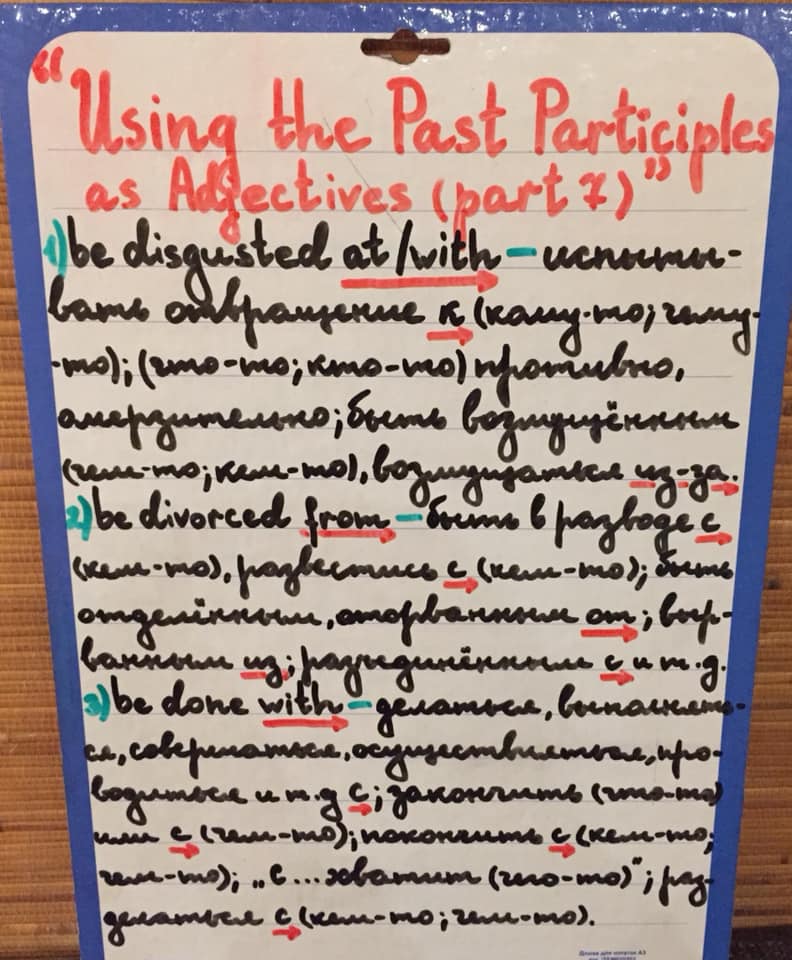 "Using the Past Participles
as Adjectives (part 7)"
1) be disgusted at/with – испыты-
вать отвращение к (кому-то; чему-
-то); (что-то; кто-то) противно,
омерзительно; быть возмущённым
(чем-то; кем-то), возмущаться из-за.
2) be divorced from – быть в разводе с
(кем-то), развестись с (кем-то); быть
отделённым, оторванным от; выр-
ванным из; разъединённым с и т.д.
3) be done with – делаться, выполнять-
ся, совершаться, осуществляться, про-
водиться и т.д с; закончить (что-то)
или с (чем-то); покончить с (кем-то;
чем-то); „С... хватит (чего-то)"; раз-
делаться с (кем-то; чем-то).